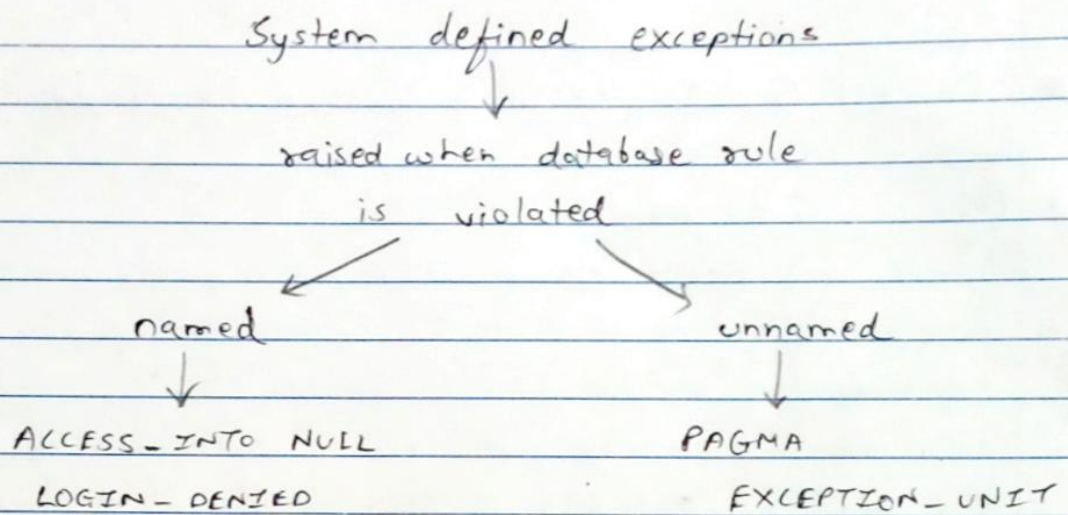 System defined exceptions
raised when database rule
is violated
named unnamed
ACCESS_INTO NULL PAGMA
LOGIN_DENIED EXCEPTION_UNIT